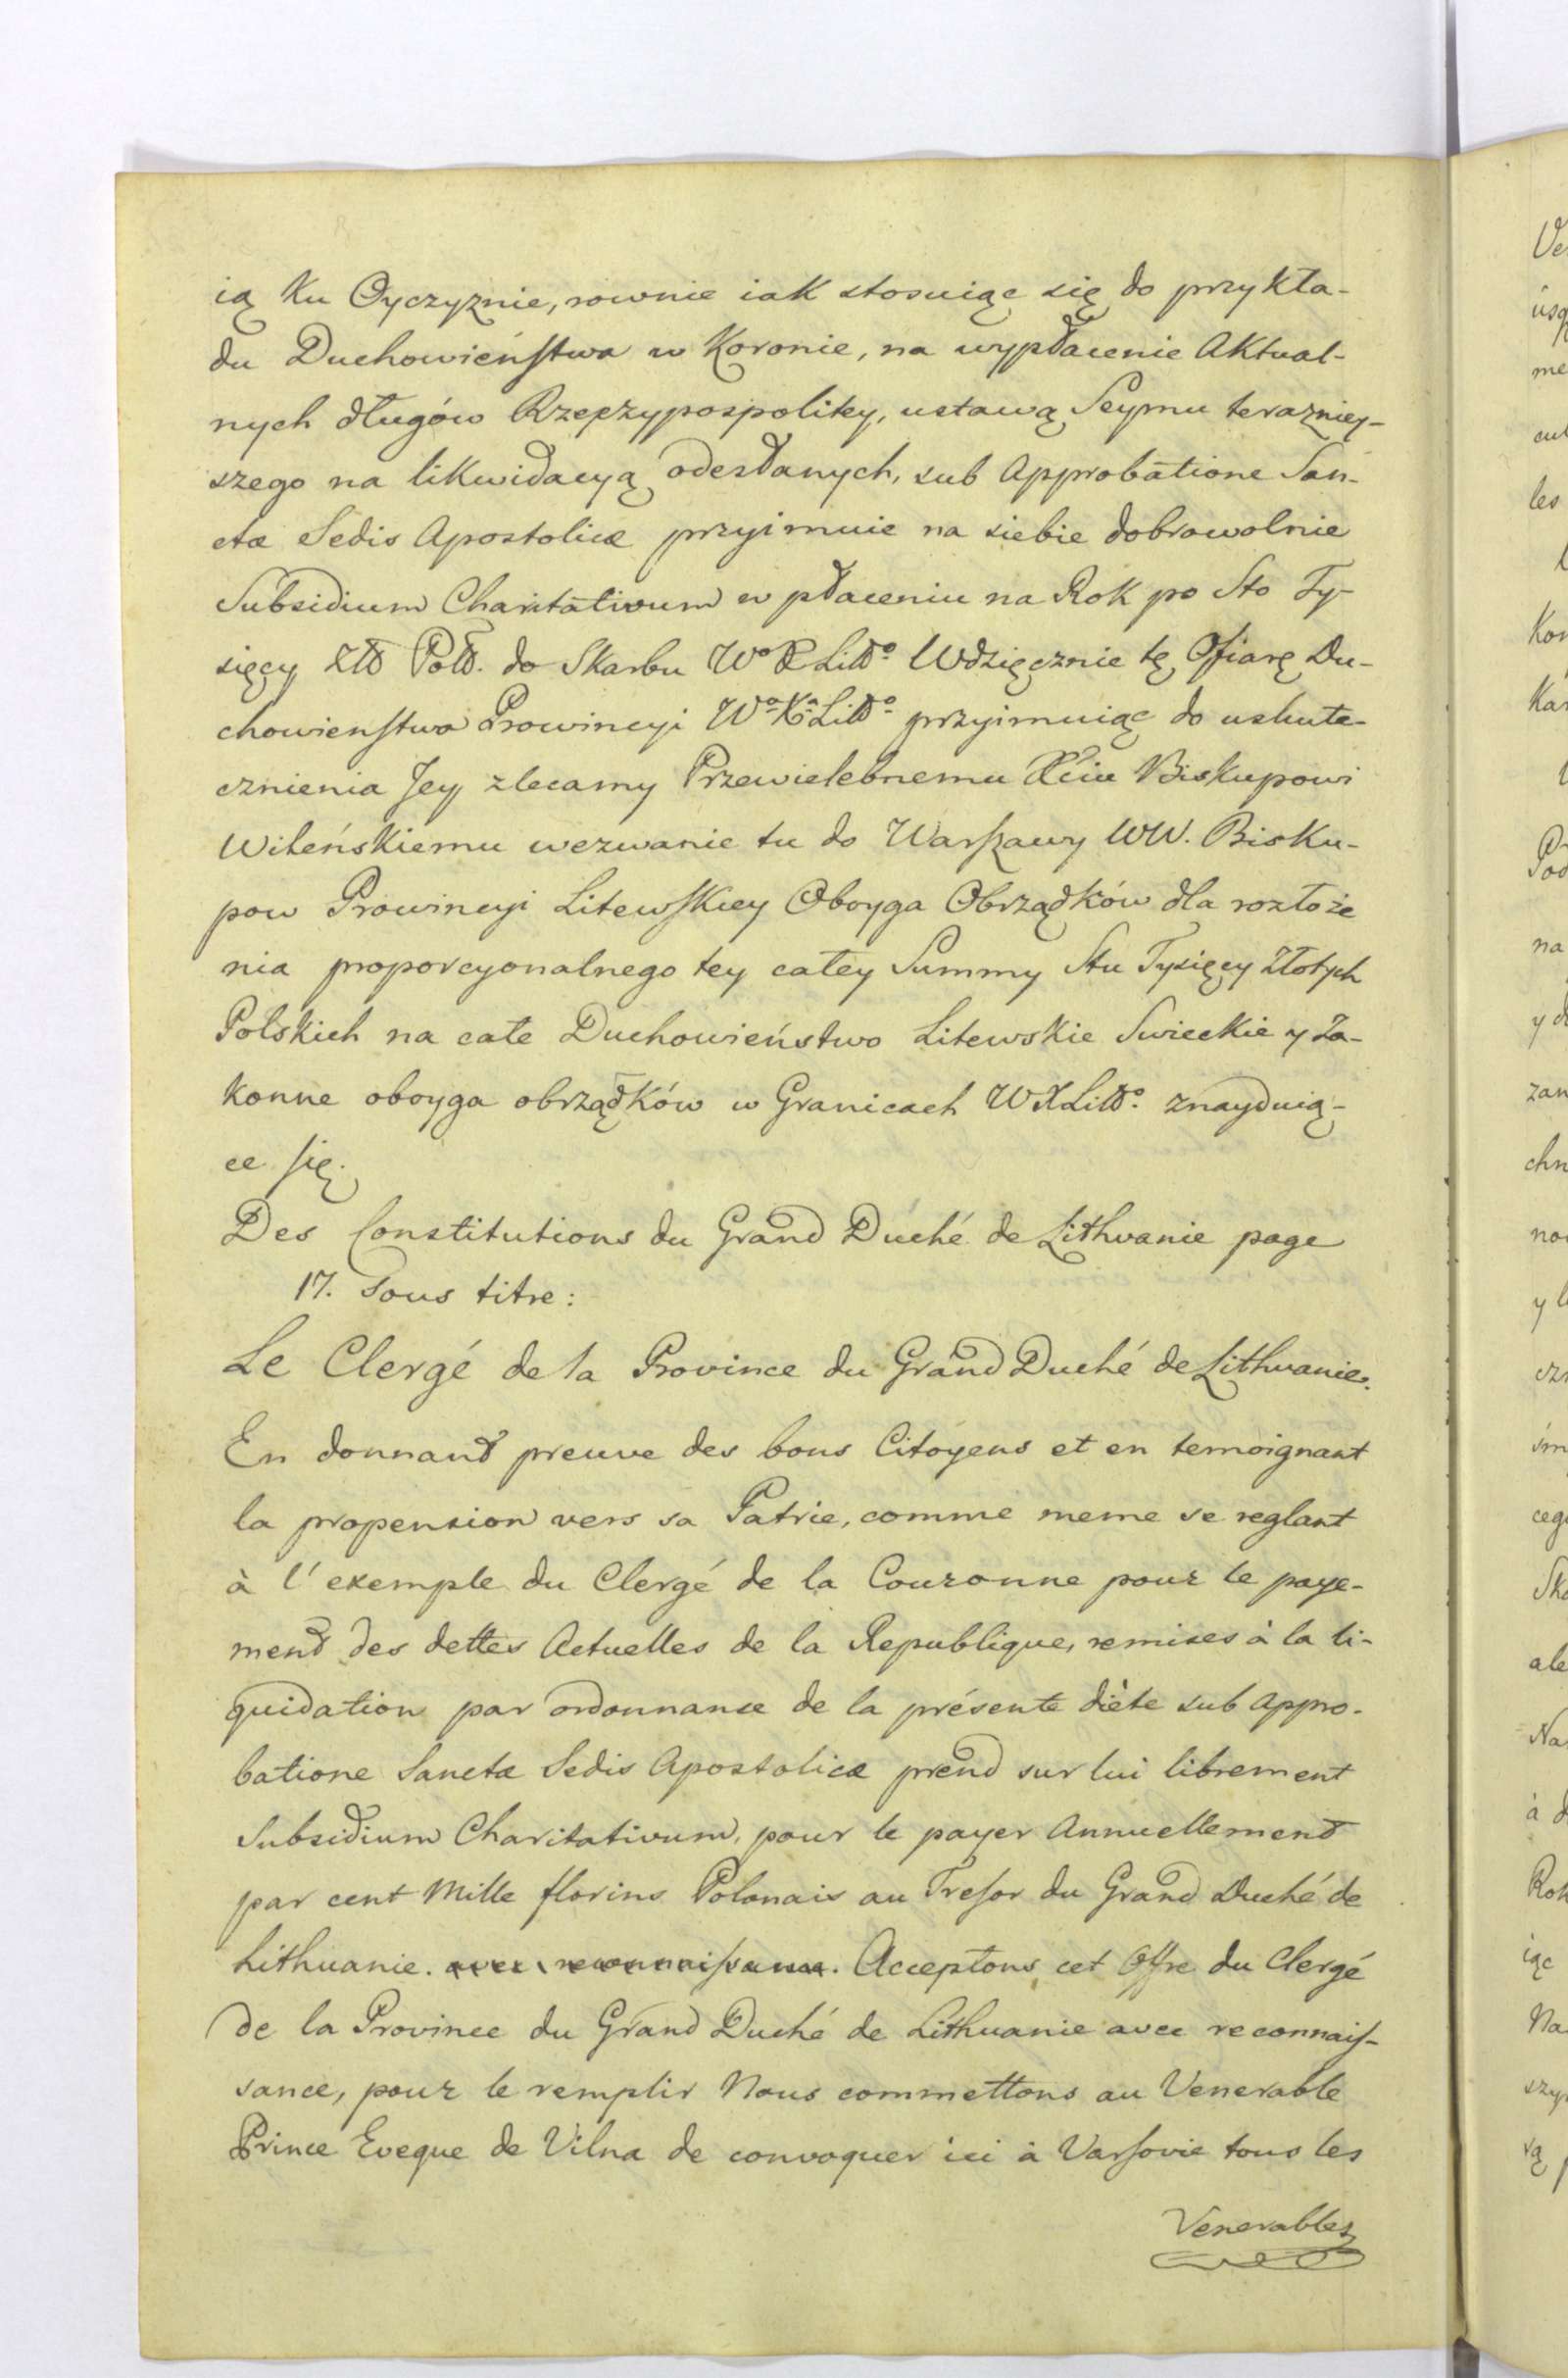 ią Ku Oyczyznie, rownie iak stosuiąc się do przykła-
du Duchowieństwa w Koronie, na wypłacenie Aktual-
nych długów Rzeczypospolitey, ustawą Seymu terazniey-
szego na likwidacyą odesłanych, sub Approbatione San-
ctæ Sedis Apostolicæ przyimuie na siebie dobrowolnie
Subsidium Charitativum w płaceniu na Rok po Sto Ty-
sięcy Złł Poll. do Skarbu Wo X Litto. Wdzięcznie tę Ofiarę Du-
chowienstwa Prowincyi Wo Xa Litto. przyimuiąc do uskute-
cznienia Jey zlecamy Przewielebnemu Xciu Biskupowi
Wileńskiemu wezwanie tu do Warszawy WW. Bisku-
pow Prowincyi Litewskiey Oboyga Obrządków dla rozłoże
nia proporcyonalnego tey całey Summy Stu Tysięcy Złotych
Polskich na całe Duchowieństwo Litewskie Swieckie y Za-
konne oboyga obrządków w Granicach WXLitto. znayduią-
ce się.
Des Constitutions du Grand Duché de Lithuanie page
17. Sous titre:
Le Clergé de la Province du Grand Duché de Lithuanie.
En donnant preuve des bons Citoyens et en temoignant
la propension vers sa Patrie, comme meme se reglant
à l'exemple du Clergé de la Couronne pour le paye-
ment des dettes Actuelles de la Republique, remises à la li-
quidation par ordonnanse de la présente diète sub Appro-
batione Sanctæ Sedis Apostolicæ prend sur lui librement
Subsidium Charitativum, pour le payer Annuellement
par cent Mille florins Polonais au Tresor du Grand Duché de
Lithuanie. avec reconnaissance. Acceptons cet Offre du Clergé
de la Province du Grand Duché de Lithuanie avec reconnais-
sance, pour le remplir Nous commettons au Venerable
Prince Eveque de Vilna de convoquer ici à Varsovie tous les
Venerables